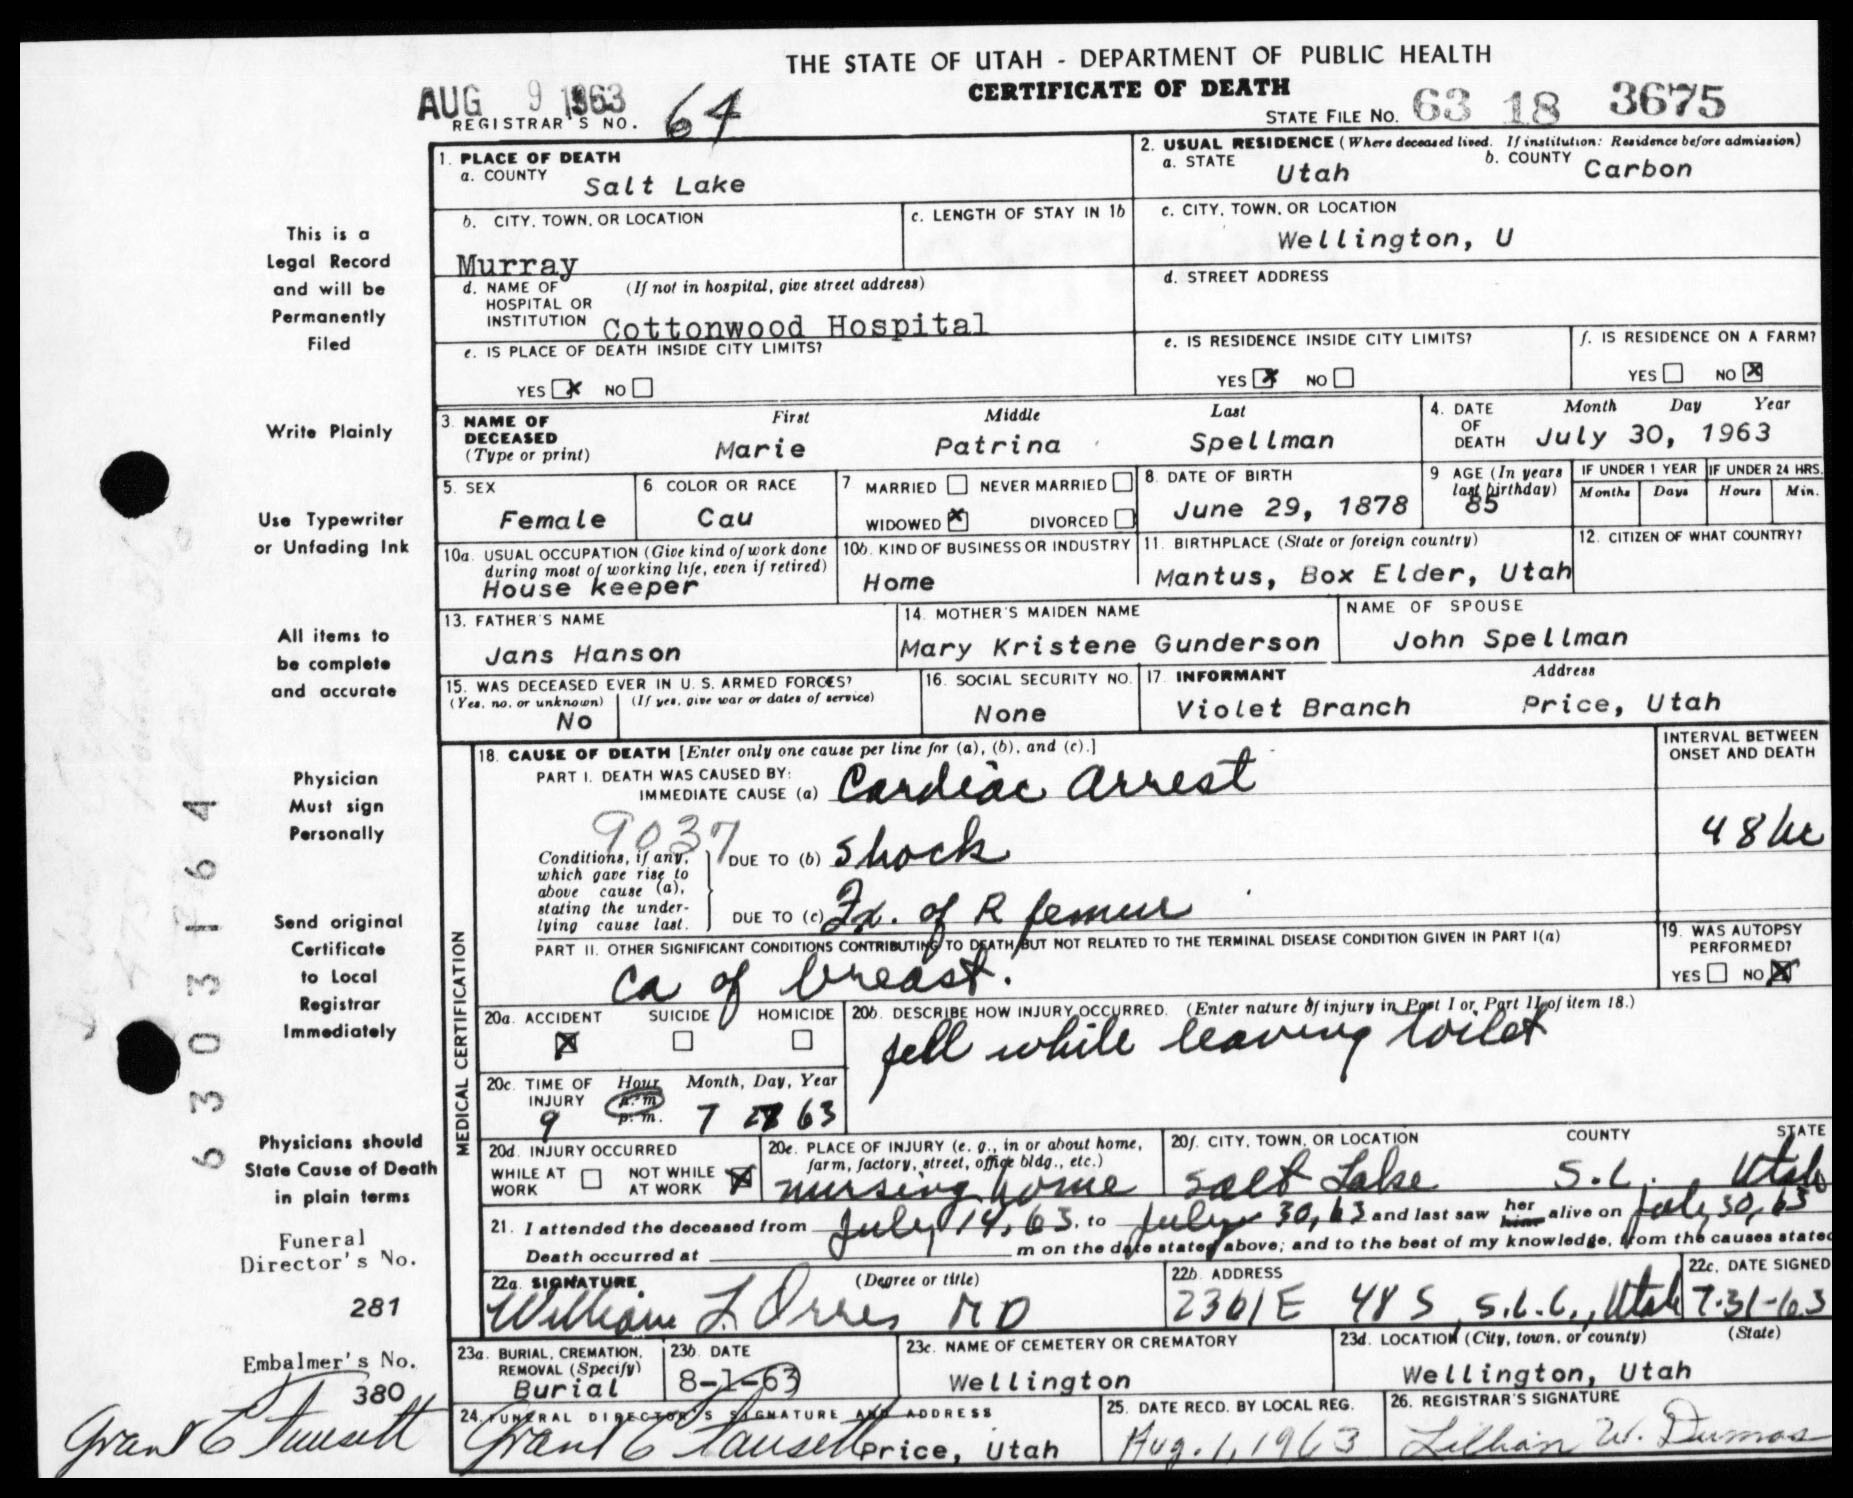 THE STATE OF UTAH - DEPARTMENT OF PUBLIC HEALTH
CERTIFICATE OF DEATH
AUG 9 1963
REGISTRAR'S NO. 64
STATE FILE NO. 63 18 3675
This is a
Legal Record
and will be
Permanently
Filed
Write Plainly
Use Typewriter
or Unfading Ink
All items to
be complete
and accurate
Physician
Must sign
Personally
Send original
Certificate
to Local
Registrar
Immediately
Physicians should
State Cause of Death
in plain terms
Funeral
Director's No.
281
Embalmer's No.
380
Grant E Fausett
6303164
1. PLACE OF DEATH
a. COUNTY Salt Lake
2. USUAL RESIDENCE (Where deceased lived. If institution: Residence before admission)
a. STATE Utah b. COUNTY Carbon
b. CITY, TOWN, OR LOCATION
Murray
c. LENGTH OF STAY IN 1b
c. CITY, TOWN, OR LOCATION
Wellington, U
d. NAME OF HOSPITAL OR INSTITUTION (If not in hospital, give street address)
Cottonwood Hospital
d. STREET ADDRESS
e. IS PLACE OF DEATH INSIDE CITY LIMITS?
YES X NO
e. IS RESIDENCE INSIDE CITY LIMITS?
YES X NO
f. IS RESIDENCE ON A FARM?
YES NO X
3. NAME OF DECEASED (Type or print)
First Middle Last
Marie Patrina Spellman
4. DATE OF DEATH Month Day Year
July 30, 1963
5. SEX
Female
6 COLOR OR RACE
Cau
7 MARRIED NEVER MARRIED
WIDOWED X DIVORCED
8. DATE OF BIRTH
June 29, 1878
9 AGE (In years last birthday)
85
IF UNDER 1 YEAR
Months Days
IF UNDER 24 HRS.
Hours Min.
10a. USUAL OCCUPATION (Give kind of work done
during most of working life, even if retired)
House keeper
10b. KIND OF BUSINESS OR INDUSTRY
Home
11. BIRTHPLACE (State or foreign country)
Mantus, Box Elder, Utah
12. CITIZEN OF WHAT COUNTRY?
13. FATHER'S NAME
Jans Hanson
14. MOTHER'S MAIDEN NAME
Mary Kristene Gunderson
NAME OF SPOUSE
John Spellman
15. WAS DECEASED EVER IN U. S. ARMED FORCES?
(Yes, no, or unknown) (If yes, give war or dates of service)
No
16. SOCIAL SECURITY NO.
None
17. INFORMANT Address
Violet Branch Price, Utah
MEDICAL CERTIFICATION
18. CAUSE OF DEATH [Enter only one cause per line for (a), (b), and (c).]
INTERVAL BETWEEN
ONSET AND DEATH
PART I. DEATH WAS CAUSED BY:
IMMEDIATE CAUSE (a) Cardiac arrest
9037
48 hr
Conditions, if any,
which gave rise to
above cause (a),
stating the under-
lying cause last.
DUE TO (b) shock
DUE TO (c) Fx. of R femur
PART II. OTHER SIGNIFICANT CONDITIONS CONTRIBUTING TO DEATH BUT NOT RELATED TO THE TERMINAL DISEASE CONDITION GIVEN IN PART I(a)
ca of breast.
19. WAS AUTOPSY
PERFORMED?
YES NO X
20a. ACCIDENT SUICIDE HOMICIDE
X
20b. DESCRIBE HOW INJURY OCCURRED. (Enter nature of injury in Part I or Part II of item 18.)
fell while leaving toilet
20c. TIME OF INJURY Hour Month, Day, Year
a. m.
p. m.
9 7 28 63
20d. INJURY OCCURRED
WHILE AT WORK NOT WHILE AT WORK X
20e. PLACE OF INJURY (e. g., in or about home,
farm, factory, street, office bldg., etc.)
nursing home
20f. CITY, TOWN, OR LOCATION COUNTY STATE
Salt Lake S.L. Utah
21. I attended the deceased from July 14, 63, to July 30, 63 and last saw her him alive on July 30, 63
Death occurred at m on the date stated above; and to the best of my knowledge, from the causes stated
22a. SIGNATURE (Degree or title)
William L. Orres MD
22b. ADDRESS
2361 E 48 S, S.L.C., Utah
22c. DATE SIGNED
7-31-63
23a. BURIAL, CREMATION,
REMOVAL (Specify)
Burial
23b. DATE
8-1-63
23c. NAME OF CEMETERY OR CREMATORY
Wellington
23d. LOCATION (City, town, or county) (State)
Wellington, Utah
24. FUNERAL DIRECTOR'S SIGNATURE AND ADDRESS
Grant E Fausett Price, Utah
25. DATE RECD. BY LOCAL REG.
Aug. 1, 1963
26. REGISTRAR'S SIGNATURE
Lillian W. Dumas